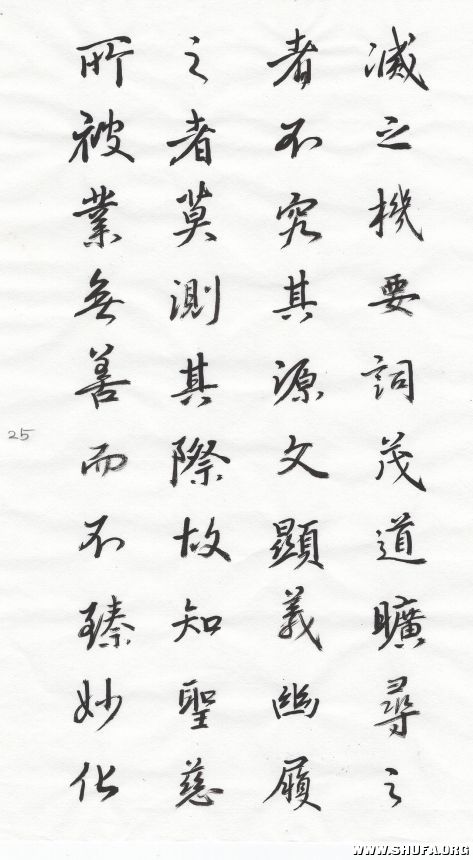 滅之機要詞茂道曠尋之
者不究其源文顯義幽履
之者莫測其際故知聖慈
所被業無善而不臻妙化
25
WWW.SHUFA.ORG